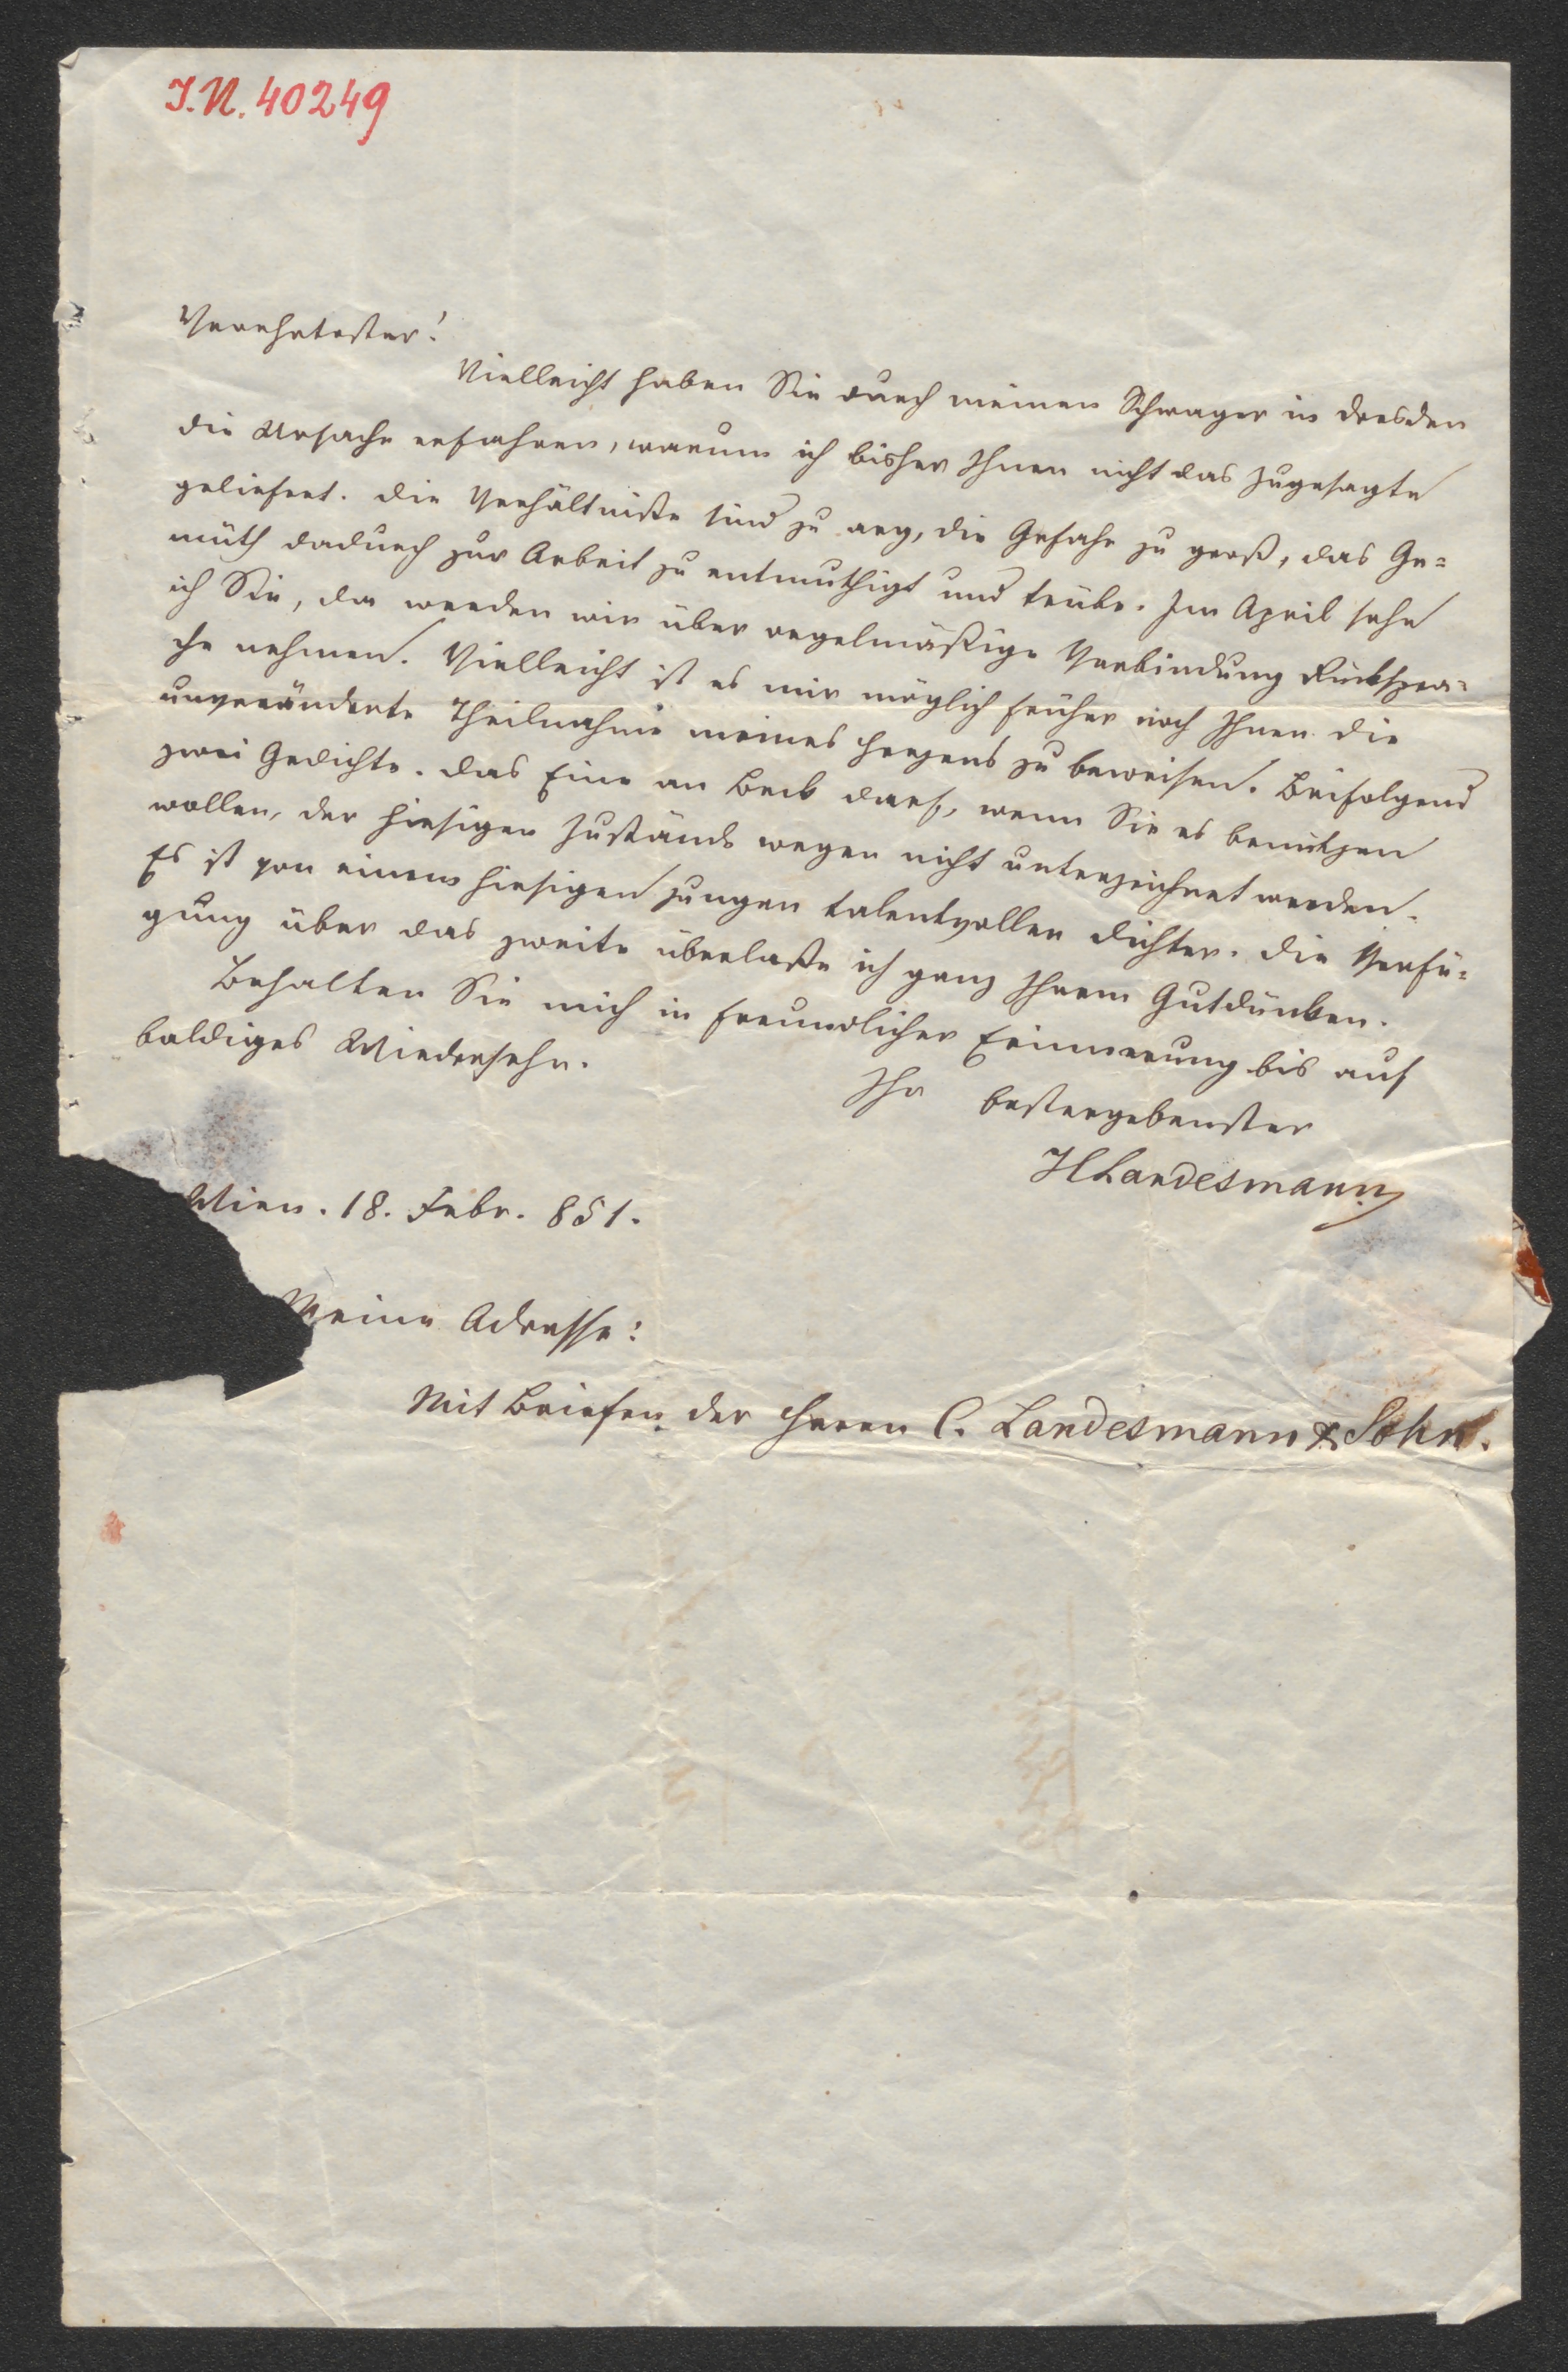 I.N. 40249
Verehrtester!
Vielleicht haben Sie durch meinen Schwager in Dresden
die Ursache erfahren, warum ich bisher Ihnen nicht das Zugesagte
geliefert. Die Verhältniße sind zu arg, die Gefahr zu groß, das Ge-
müth dadurch zur Arbeit zu entmuthigt und trübe. Im April sehe
ich Sie, da werden wir über regelmäßige Verbindung Rückspra-
che nehmen. Vielleicht ist es mir möglich früher noch Ihnen die
unveränderte Theilnahme meines Herzens zu beweisen. Beifolgend
zwei Gedichte. Das Eine an Beck darf, wenn Sie es benützen
wollen, der hiesigen Zustände wegen nicht unterzeichnet werden.
Es ist von einem hiesigen jungen talentvollen Dichter. Die Verfü-
gung über das zweite überlaße ich ganz Ihrem Gutdünken.
Behalten Sie mich in freundlicher Erinnerung bis auf
baldiges Wiedersehn.
Ihr bestergebenster
HLandesmann
Wien. 18. Febr. 851.
Meine Adresse:
Mit Briefen der Herrn C. Landesmann & Sohn.